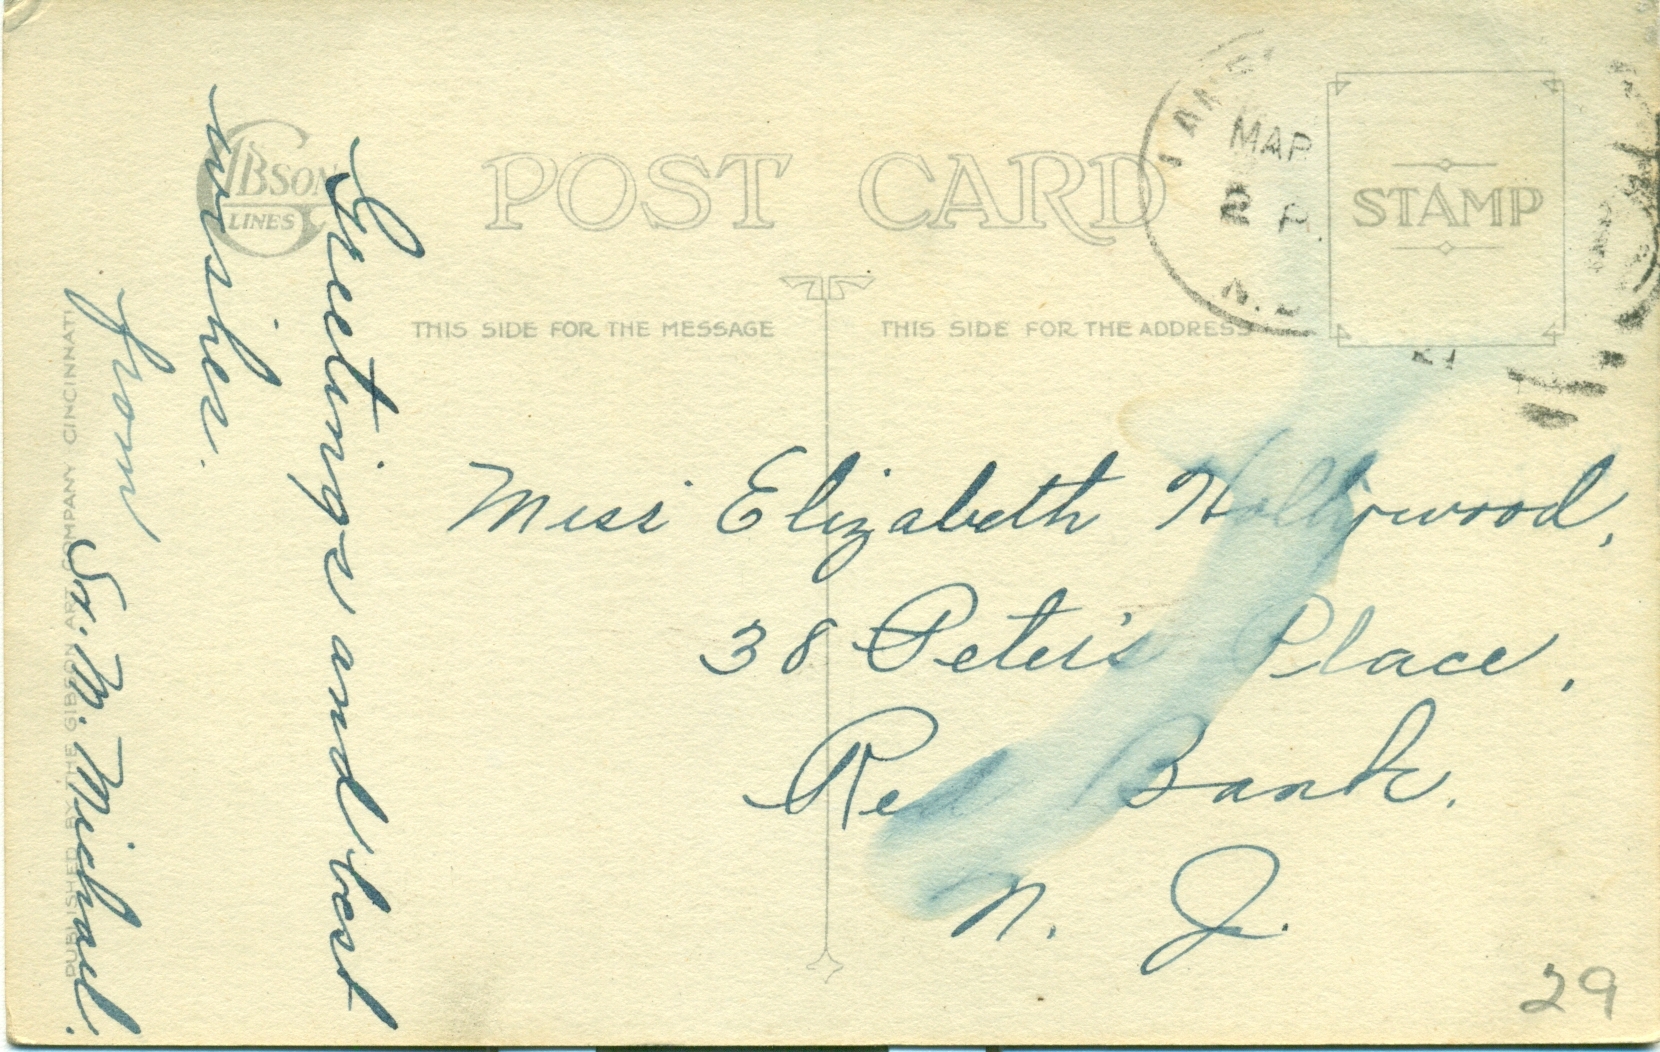 GIBSON
LINES
POST CARD
STAMP
MAR
2 P.
N.
21
THIS SIDE FOR THE MESSAGE
THIS SIDE FOR THE ADDRESS
Greetings and best
wishes.
from
Sr. M. Michael.
PUBLISHED BY THE GIBSON ART COMPANY CINCINNATI
Miss Elizabeth Hollywood,
38 Peter's Place,
Red Bank.
N. J.
29